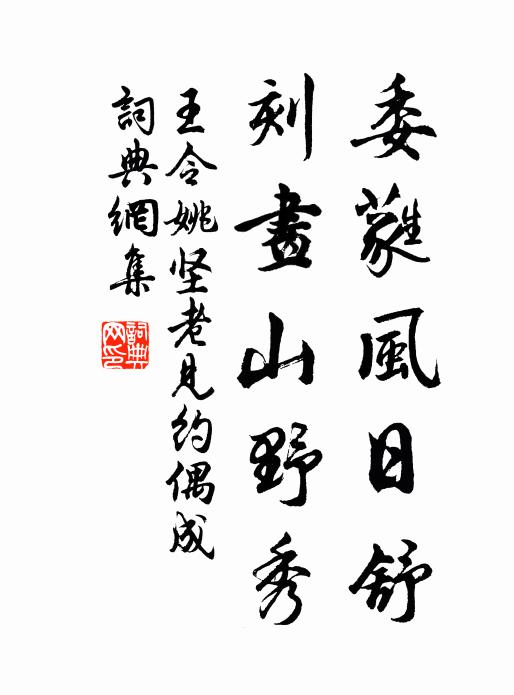 委蕤風日舒
刻畫山野秀
王令姚坚老見約偶成
詞典網集
詞典網印